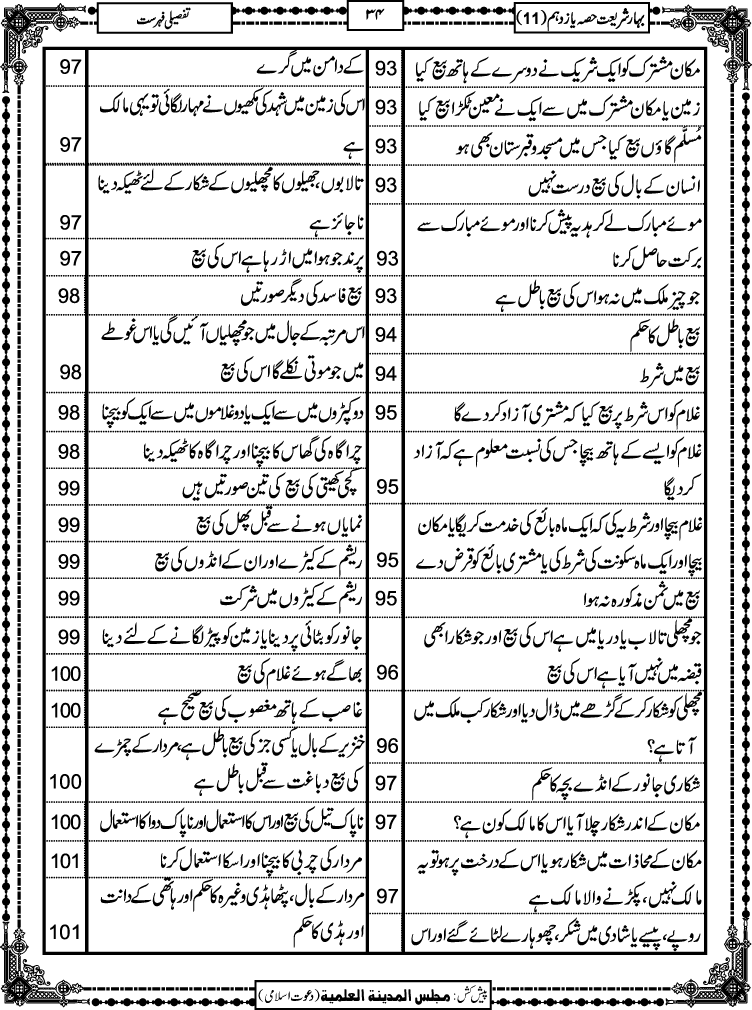 بہار شریعت حصہ یازدہم (11)
۳۴
تفصیلی فہرست
مکان مشترک کو ایک شریک نے دوسرے کے ہاتھ بیع کیا 93
زمین یا مکان مشترک میں سے ایک نے معین ٹکڑا بیع کیا 93
مُسلَّم گاؤں بیع کیا جس میں مسجد و قبرستان بھی ہو 93
انسان کے بال کی بیع درست نہیں 93
موئے مبارک لے کر ہدیہ پیش کرنا اور موئے مبارک سے
برکت حاصل کرنا 93
جو چیز ملک میں نہ ہو اس کی بیع باطل ہے 93
بیع باطل کا حکم 94
بیع میں شرط 94
غلام کو اس شرط پر بیع کیا کہ مشتری آزاد کر دے گا 95
غلام کو ایسے کے ہاتھ بیچا جس کی نسبت معلوم ہے کہ آزاد
کر دیگا 95
غلام بیچا اور شرط یہ کی کہ ایک ماہ بائع کی خدمت کریگا یا مکان
بیچا اور ایک ماہ سکونت کی شرط کی یا مشتری بائع کو قرض دے 95
بیع میں ثمن مذکور نہ ہوا 95
جو مچھلی تالاب یا دریا میں ہے اس کی بیع اور جو شکار ابھی
قبضہ میں نہیں آیا ہے اس کی بیع 96
مچھلی کو شکار کر کے گڑھے میں ڈال دیا اور شکار کب ملک میں
آتا ہے؟ 96
شکاری جانور کے انڈے بچہ کا حکم 97
مکان کے اندر شکار چلا آیا اس کا مالک کون ہے؟ 97
مکان کے محاذات میں شکار ہو یا اس کے درخت پر ہو تو یہ
مالک نہیں، پکڑنے والا مالک ہے 97
روپے، پیسے یا شادی میں شکر، چھوہارے لٹائے گئے اور اس
کے دامن میں گرے 97
اس کی زمین میں شہد کی مکھیوں نے مہار لگائی تو یہی مالک
ہے 97
تالابوں، جھیلوں کا مچھلیوں کے شکار کے لئے ٹھیکہ دینا
ناجائز ہے 97
پرند جو ہوا میں اڑ رہا ہے اس کی بیع 97
بیع فاسد کی دیگر صورتیں 98
اس مرتبہ کے جال میں جو مچھلیاں آئیں گی یا اس غوطے
میں جو موتی نکلے گا اس کی بیع 98
دو کپڑوں میں سے ایک یا دو غلاموں میں سے ایک کو بیچنا 98
چراگاہ کی گھاس کا بیچنا اور چراگاہ کا ٹھیکہ دینا 98
کچی کھیتی کی بیع کی تین صورتیں ہیں 99
نمایاں ہونے سے قبل پھل کی بیع 99
ریشم کے کیڑے اور ان کے انڈوں کی بیع 99
ریشم کے کیڑوں میں شرکت 99
جانور کو بٹائی پر دینا یا زمین کو پیڑ لگانے کے لئے دینا 99
بھاگے ہوئے غلام کی بیع 100
غاصب کے ہاتھ مغصوب کی بیع صحیح ہے 100
خنزیر کے بال یا کسی جز کی بیع باطل ہے، مردار کے چمڑے
کی بیع دباغت سے قبل باطل ہے 100
ناپاک تیل کی بیع اور اس کا استعمال اور ناپاک دوا کا استعمال 100
مردار کی چربی کا بیچنا اور اسکا استعمال کرنا 101
مردار کے بال، پٹھا ہڈی وغیرہ کا حکم اور ہاتھی کے دانت
اور ہڈی کا حکم 101
پیش کش: مجلس المدینة العلمیة (دعوت اسلامی)